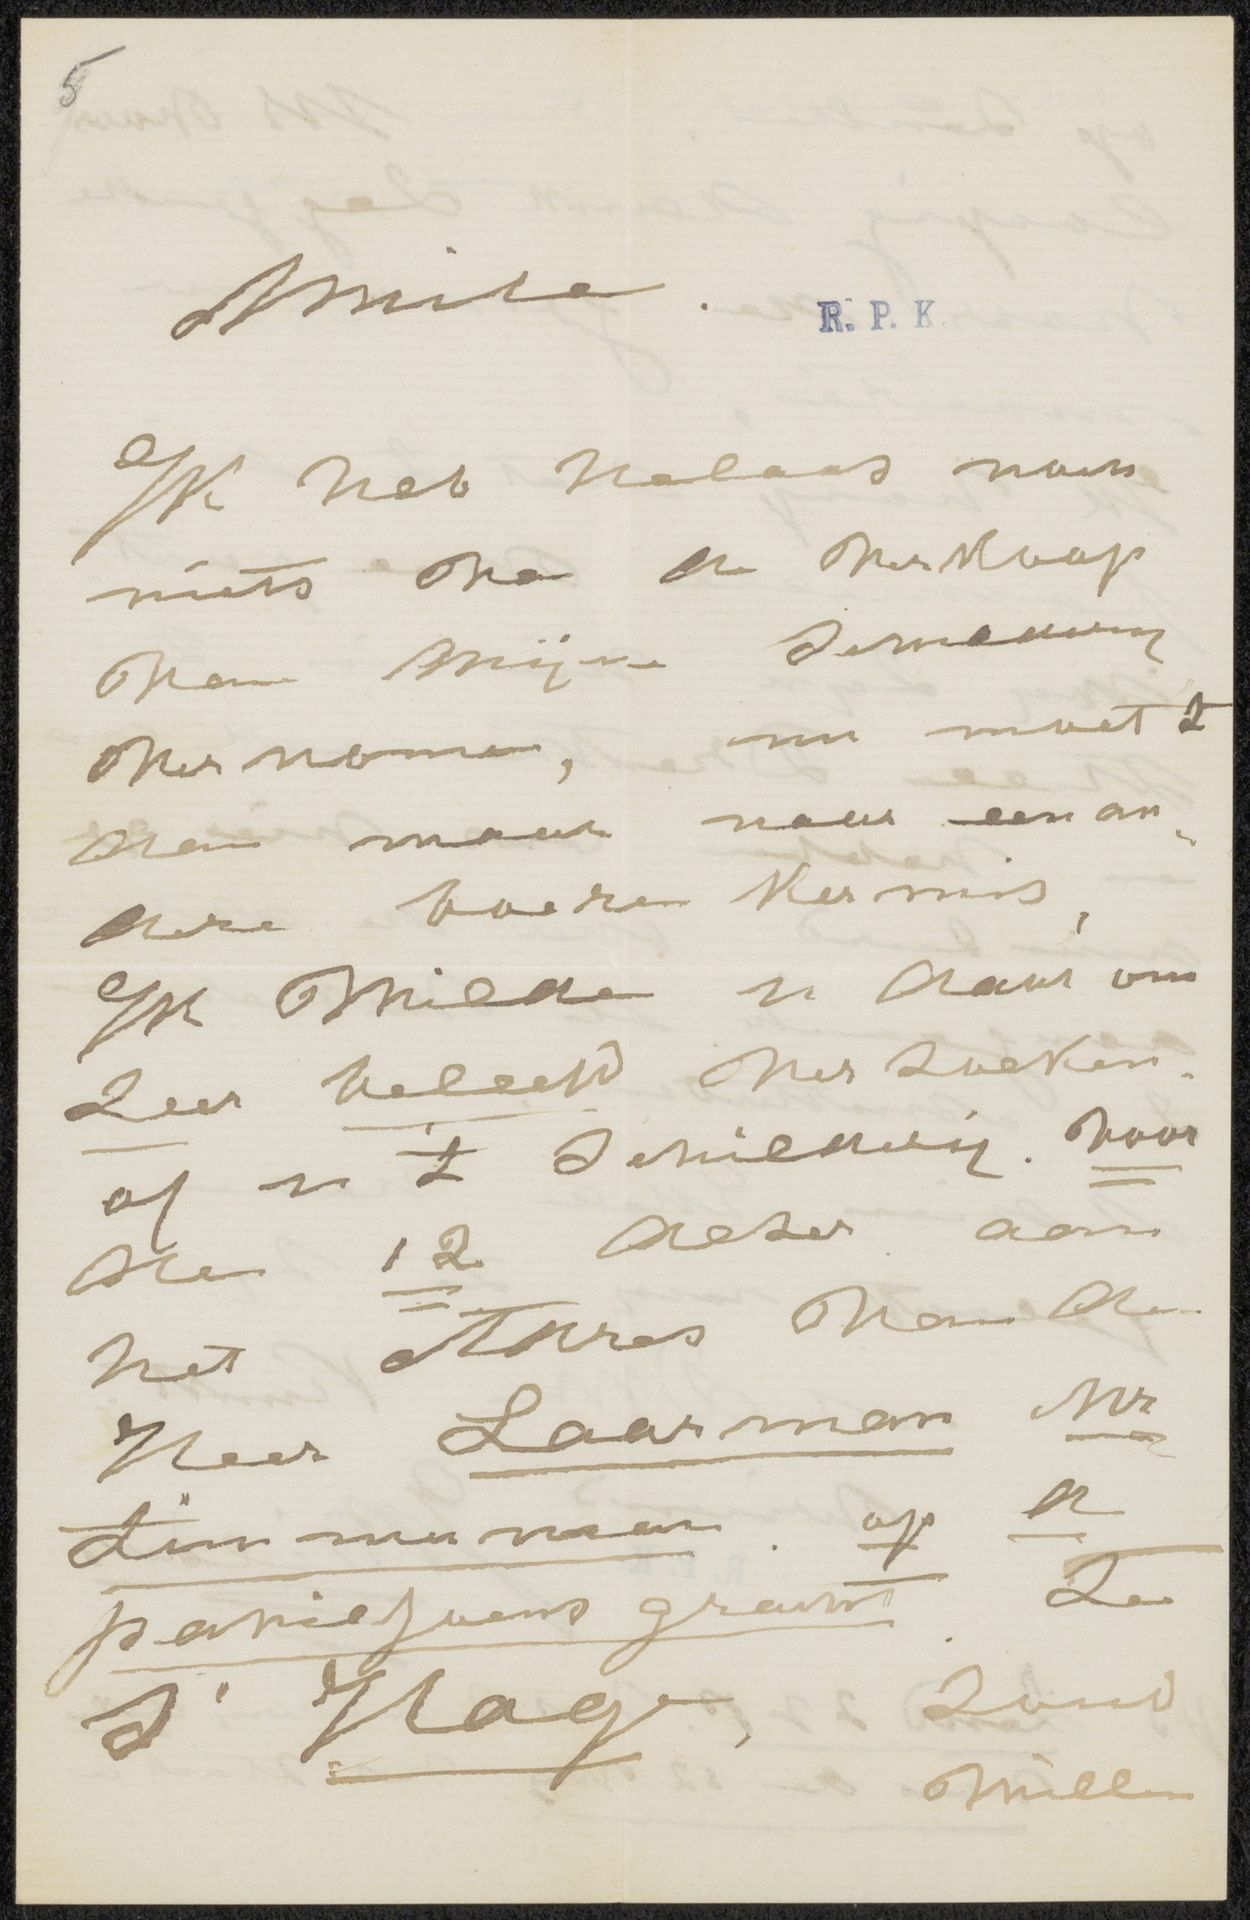 5
Amice.
R. P. K.
Ik heb helaas noch
niets va de verkoop
van mijne
vernomen, nu moet 't
dan maar naar een an-
dere boeren kermis,
Ik wilde u daar om
zeer beleefd verzoeken.
of u 't Schilderij. voor
den 12 dezer aan
het Adres van de
Heer Laarman Mr
timmerman. op de
paviljoens gracht. Te
S' Hage, zoud
willen